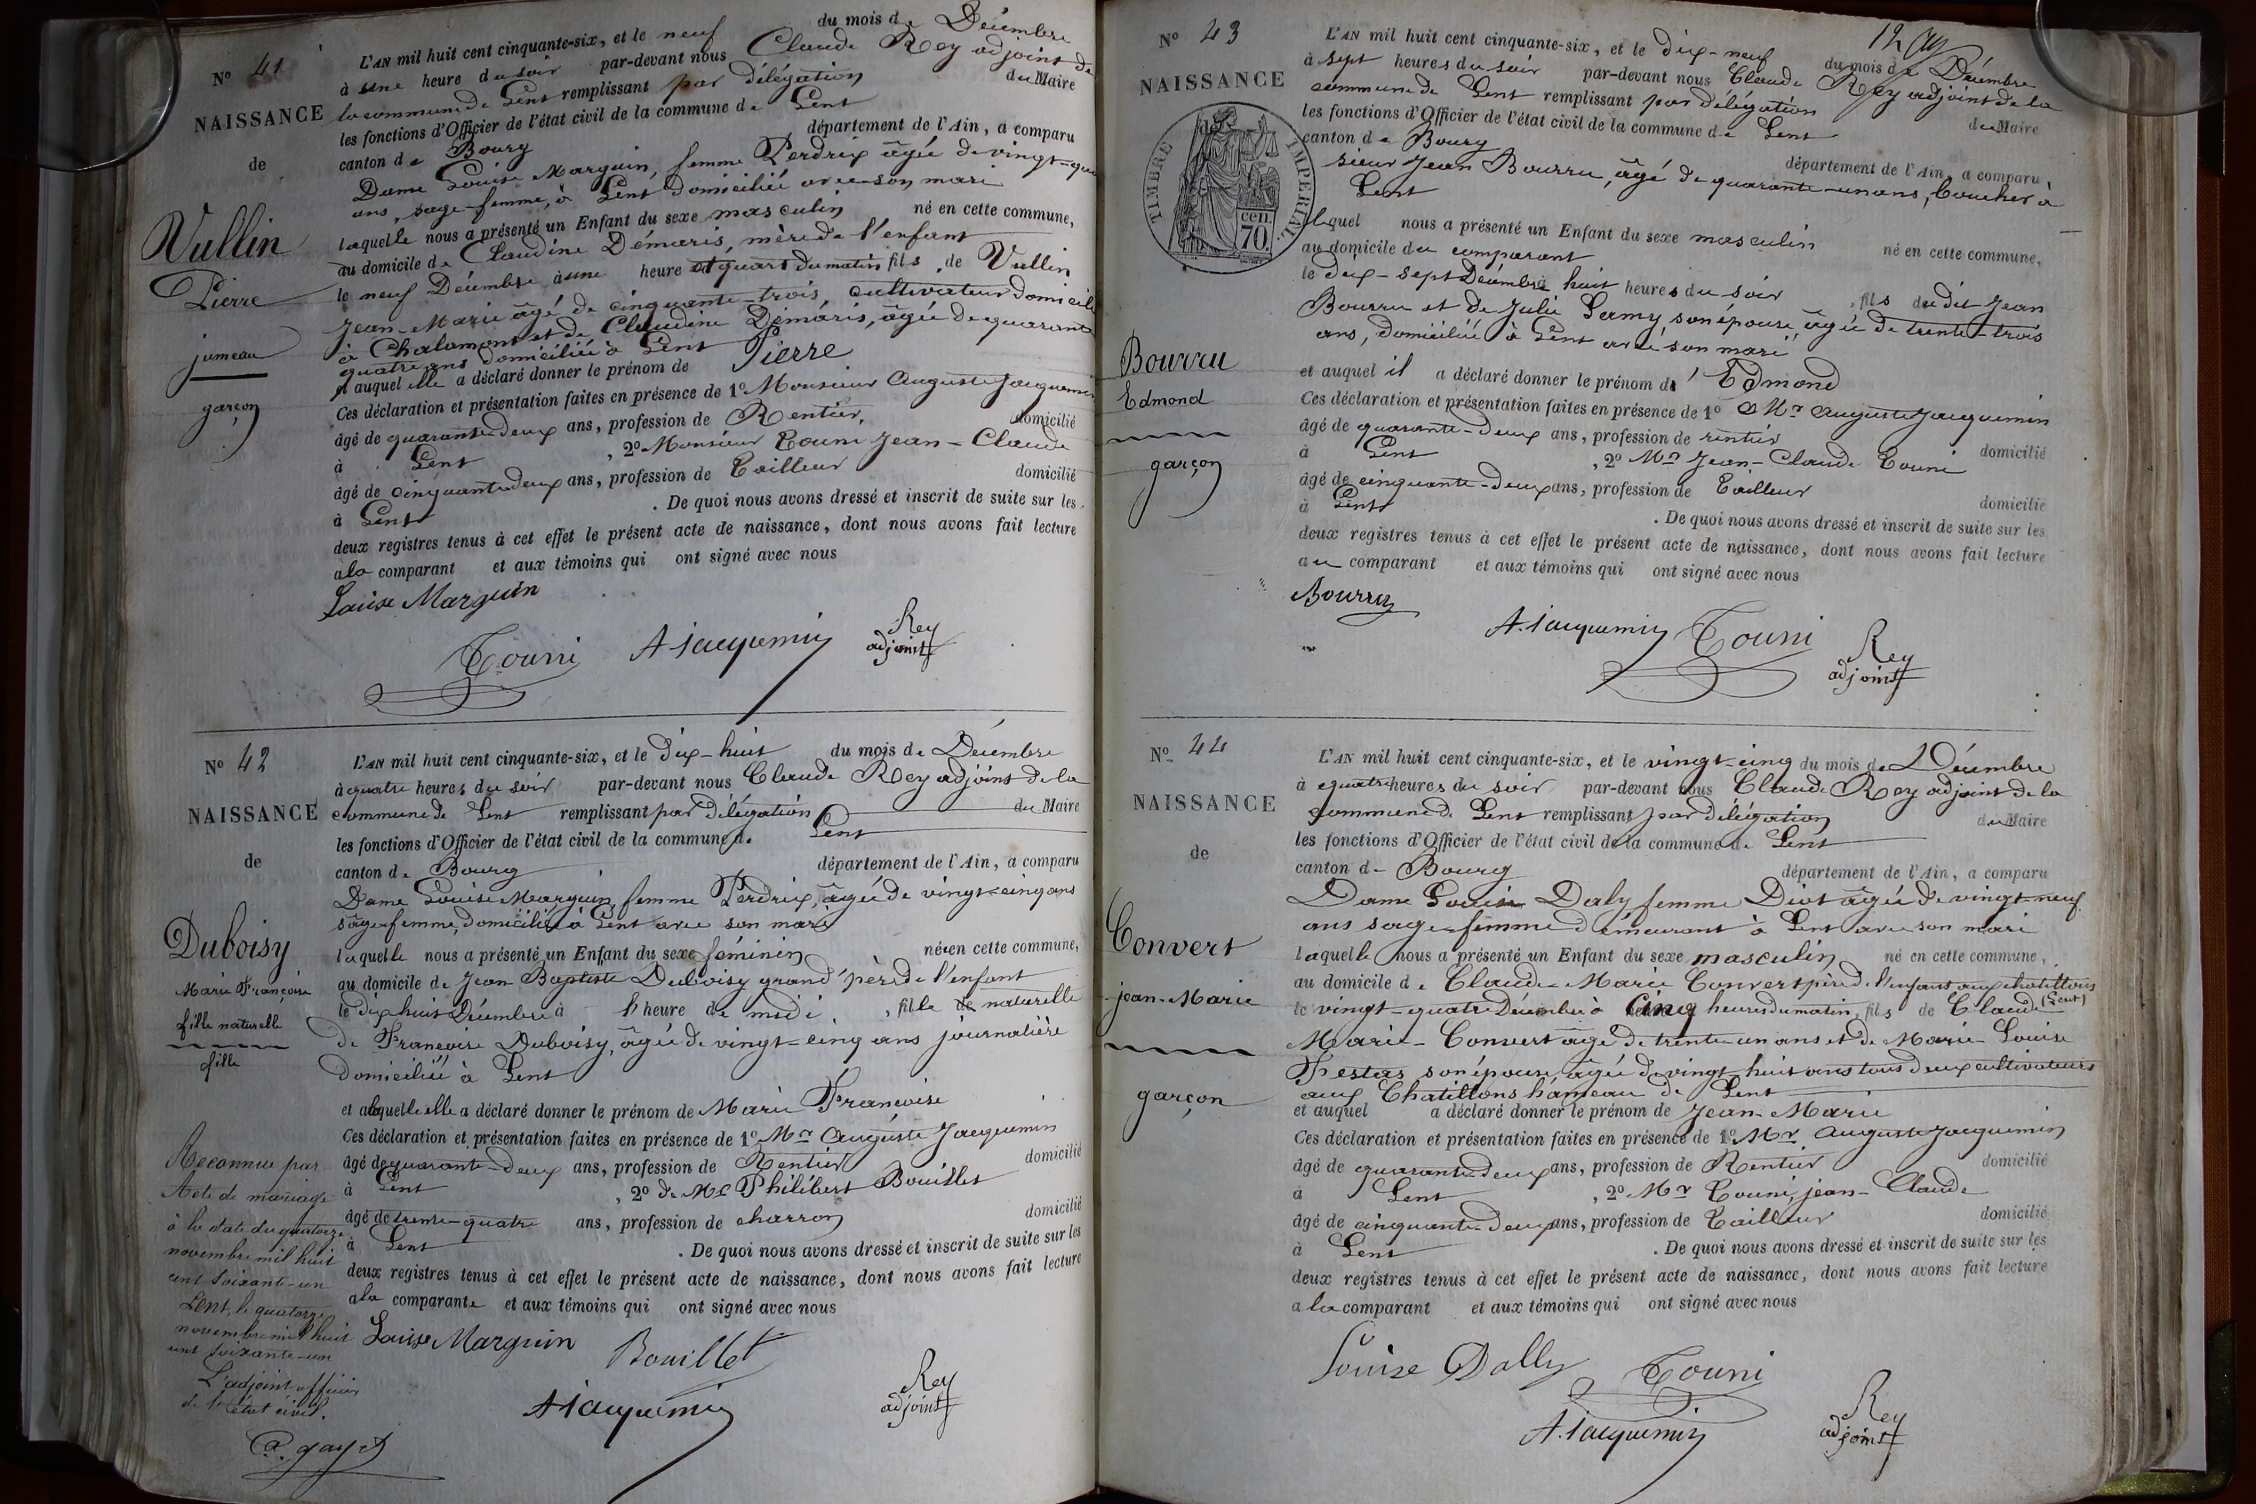 N° 41
NAISSANCE
de
Vullin
Pierre
jumeau
garçon
L'AN mil huit cent cinquante-six, et le neuf du mois de Décembre
à une heure du soir par-devant nous Claude Rey adjoint de
la commune de Lent remplissant par délégation du Maire
les fonctions d'Officier de l'état civil de la commune de Lent
canton de Bourg département de l'Ain, a comparu
Dame Louise Marguin, femme Perdrix âgée de vingt-
ans, sage-femme, à Lent domiciliée avec son mari
laquelle nous a présenté un Enfant du sexe masculin né en cette commune,
au domicile de Claudine Démaris, mère de l'enfant
le neuf Décembre à une heure et quart du matin fils de Vullin
Jean-Marie âgé de cinquante-trois, cultivateur domicilié
à Chalamont et de Claudine Démaris, âgée de quarante
quatre ans domiciliée à Lent
et auquel elle a déclaré donner le prénom de Pierre
Ces déclaration et présentation faites en présence de 1° Monsieur Auguste Jacquemin
âgé de quarante deux ans, profession de Rentier, domicilié
à Lent, 2° Monsieur Touni Jean-Claude
âgé de cinquante deux ans, profession de Tailleur domicilié
à Lent. De quoi nous avons dressé et inscrit de suite sur les
deux registres tenus à cet effet le présent acte de naissance, dont nous avons fait lecture
a la comparant et aux témoins qui ont signé avec nous
Louise Marguin
Touni A Jacquemin Rey
adjoint
N° 42
NAISSANCE
de
Duboisy
Marie Françoise
fille naturelle
fille
Reconnue par
Acte de mariage
à la date du quatorze
novembre mil huit
cent soixante-un
Lent, le quatorze
novembre mil huit
cent soixante-un
L'adjoint officier
de l'état civil.
L'AN mil huit cent cinquante-six, et le dix-huit du mois de Décembre
à quatre heures du soir par-devant nous Claude Rey adjoint de la
commune de Lent remplissant par délégation du Maire
les fonctions d'Officier de l'état civil de la commune de Lent
canton de Bourg département de l'Ain, a comparu
Dame Louise Marguin, femme Perdrix, âgée de vingt-cinq ans
sage-femme, domiciliée à Lent avec son mari
laquelle nous a présenté un Enfant du sexe féminin née en cette commune,
au domicile de Jean Baptiste Duboisy grand'père de l'enfant
le dix huit Décembre à l'heure de midi, fille de naturelle
de Françoise Duboisy, âgée de vingt-cinq ans journalière
domiciliée à Lent
et a laquelle elle a déclaré donner le prénom de Marie Françoise
Ces déclaration et présentation faites en présence de 1° Mr Auguste Jacquemin
âgé de quarante-deux ans, profession de Rentier domicilié
à Lent, 2° de Mr Philibert Bouillet
âgé de trente-quatre ans, profession de charron domicilié
à Lent. De quoi nous avons dressé et inscrit de suite sur les
deux registres tenus à cet effet le présent acte de naissance, dont nous avons fait lecture
a la comparante et aux témoins qui ont signé avec nous
Louise Marguin Bouillet
A Jacquemin Rey
adjoint
N° 43
NAISSANCE
de
TIMBRE IMPERIAL
70 cen.
Bourru
Edmond
garçon
L'AN mil huit cent cinquante-six, et le dix-neuf du mois de Décembre
à sept heures du soir par-devant nous Claude Rey adjoint de la
commune de Lent remplissant par délégation du Maire
les fonctions d'Officier de l'état civil de la commune de Lent
canton de Bourg département de l'Ain, a comparu
sieur Jean Bourru, âgé de quarante-un ans, boucher à
Lent
lequel nous a présenté un Enfant du sexe masculin né en cette commune,
au domicile du comparant
le dix-sept Décembre huit heures du soir, fils du dit Jean
Bourru et de Julie Lamy, son épouse, âgée de trente-trois
ans, domiciliée à Lent avec son mari
et auquel il a déclaré donner le prénom d'Edmond
Ces déclaration et présentation faites en présence de 1° Mr Auguste Jacquemin
âgé de quarante-deux ans, profession de rentier domicilié
à Lent, 2° Mr Jean-Claude Touni
âgé de cinquante-deux ans, profession de Tailleur domicilié
à Lent. De quoi nous avons dressé et inscrit de suite sur les
deux registres tenus à cet effet le présent acte de naissance, dont nous avons fait lecture
au comparant et aux témoins qui ont signé avec nous
Bourru
A. Jacquemin Touni Rey
adjoint
N° 44
NAISSANCE
de
Convert
jean-Marie
garçon
L'AN mil huit cent cinquante-six, et le vingt-cinq du mois de Décembre
à quatre heures du soir par-devant nous Claude Rey adjoint de la
commune de Lent remplissant par délégation du Maire
les fonctions d'Officier de l'état civil de la commune de Lent
canton de Bourg département de l'Ain, a comparu
Dame Louise Daly femme Diot âgée de vingt-neuf
ans sage-femme demeurant à Lent avec son mari
laquelle nous a présenté un Enfant du sexe masculin né en cette commune,
au domicile de Claude-Marie Convert père de l'enfant aux chatillons
le vingt-quatre Décembre à cinq heures du matin, fils de Claude (Lent)
Marie-Convert âgé de trente-un ans et de Marie-Louise
Trestas son épouse, âgée de vingt-huit ans tous deux cultivateurs
aux Chatillons hameau de Lent
et auquel a déclaré donner le prénom de Jean-Marie
Ces déclaration et présentation faites en présence de 1° Mr Auguste Jacquemin
âgé de quarante deux ans, profession de Rentier domicilié
à Lent, 2° Mr Touni, jean-Claude
âgé de cinquante-deux ans, profession de Tailleur domicilié
à Lent. De quoi nous avons dressé et inscrit de suite sur les
deux registres tenus à cet effet le présent acte de naissance, dont nous avons fait lecture
a la comparant et aux témoins qui ont signé avec nous
Louise Dally Touni
A. Jacquemin Rey
adjoint